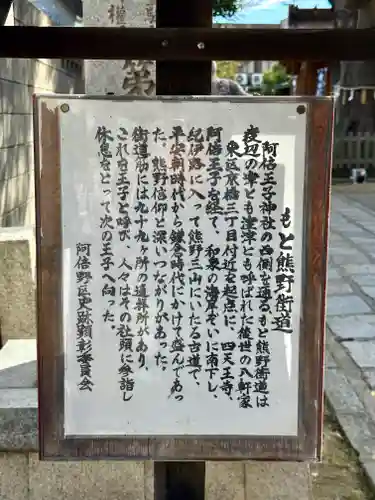 もと熊野街道
阿倍王子神社の西側を通る、もと熊野街道は
渡辺の津とも窪津とも呼ばれた後世の八軒家
東区京橋三丁目付近を起点に、四天王寺、
阿倍王子を経て、和泉の海岸ぞいに南下し、
紀伊路に入って熊野三山にいたる古道で、
平安朝時代から鎌倉時代にかけて盛んであっ
た。熊野信仰と深いつながりがあった。
街道筋には九十九ヶ所の遙拝所があり、
これを王子と呼び、人々はその社頭に参詣し
休息をとって次の王子へ向った。
阿倍野区史跡顕彰委員会